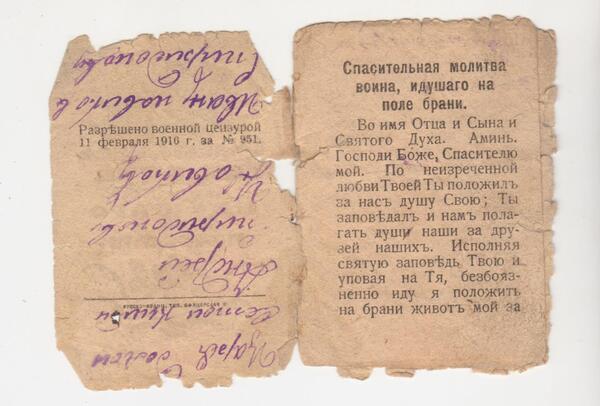 Иван Новиков
Разрѣшено военной цензурой
11 февраля 1916 г. за № 951.
Андрей
РУССКО-ФРАНЦ. ТИП. ОФИЦЕРСКАЯ
Спасительная молитва
воина, идушаго на
поле брани.
Во имя Отца и Сына и
Святого Духа. Аминь.
Господи Боже, Спасителю
мой. По неизреченной
любви Твоей Ты положилъ
за насъ душу Свою; Ты
заповѣдалъ и намъ пола-
гать души наши за дру-
зей нашихъ. Исполняя
святую заповѣдь Твою и
уповая на Тя, безбояз-
ненно иду я положить
на брани животъ мой за